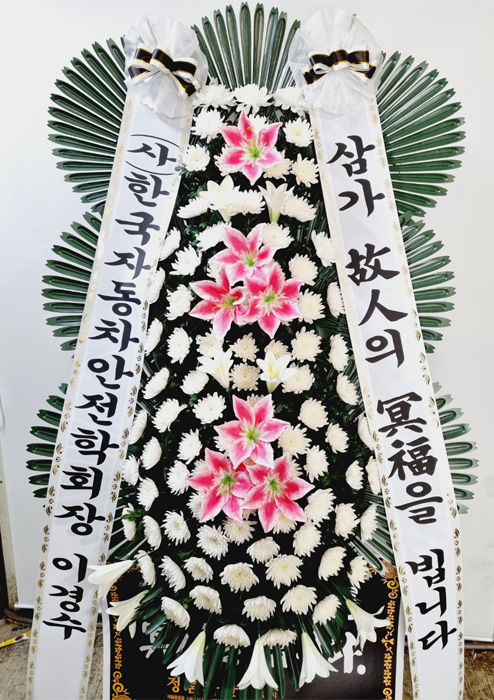 (사)한국자동차안전학회장 이경수
삼가 故人의 冥福을 빕니다